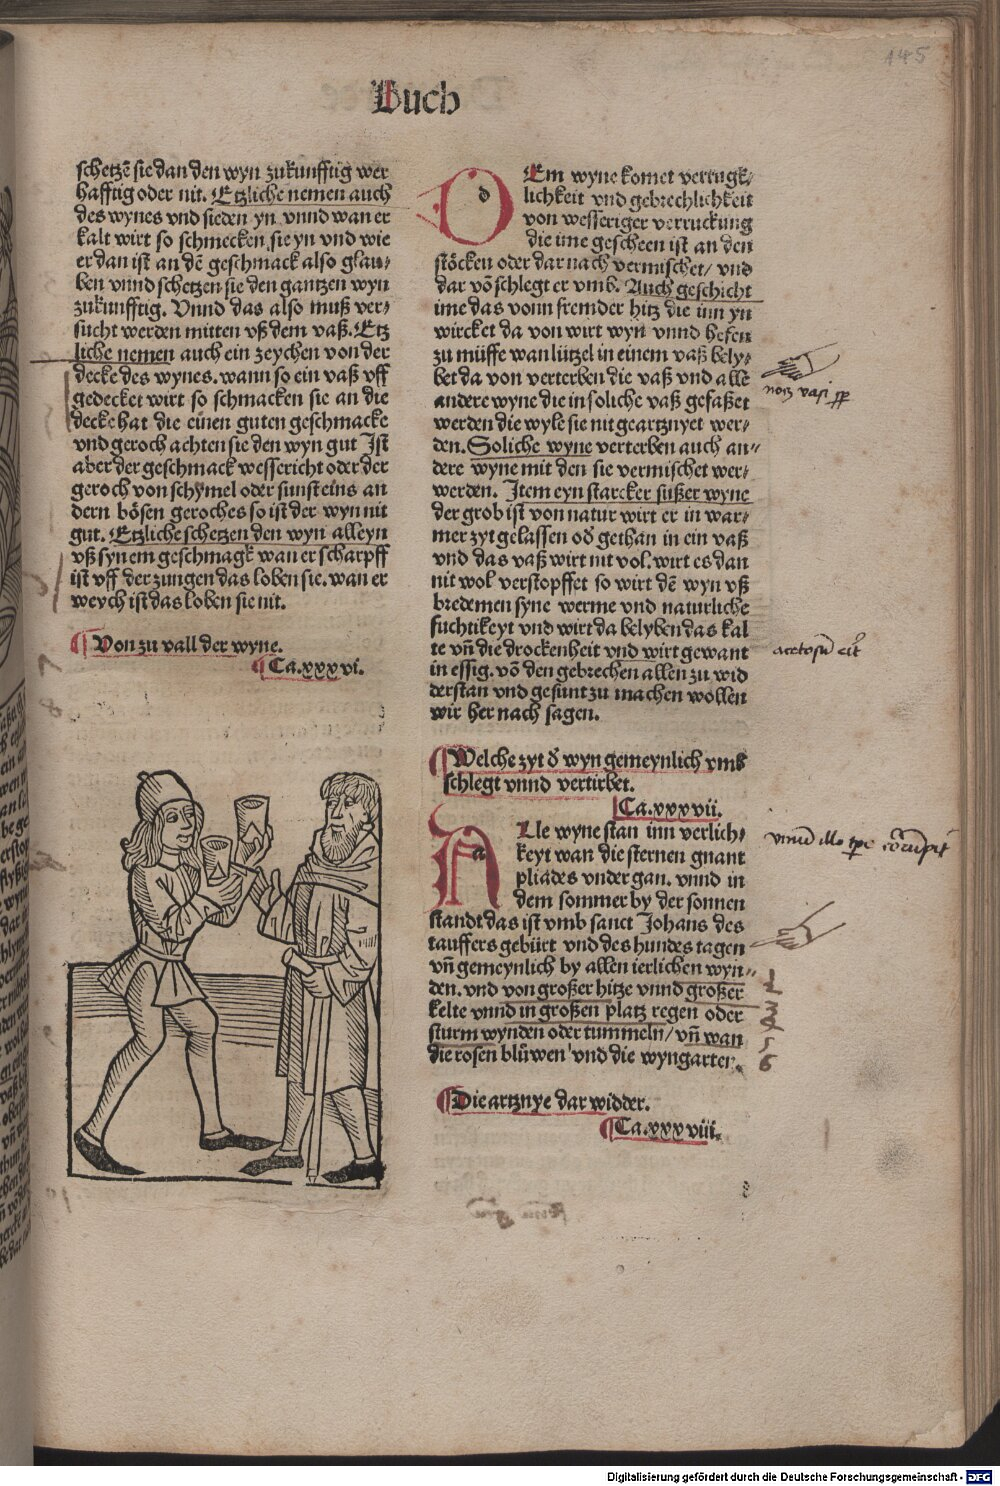 145
Buch
schetzē sie dan den wyn zukunfftig wer
hafftig oder nit. Etzliche nemen auch
des wynes vnd sieden yn vnnd wan er
kalt wirt so schmecken sie yn vnd wie
er dan ist an dē geschmack also glau⸗
ben vnnd schetzen sie den gantzen wyn
zukunfftig. Vnnd das also muß ver⸗
sucht werden mitten vß dem vaß. Etz
liche nemen auch ein zeychen von der
decke des wynes. wann so ein vaß vff
gedecket wirt so schmacken sie an die
decke hat die einen guten geschmacke
vnd geroch achten sie den wyn gut Ist
aber der geschmack wessericht oder der
geroch von schymel oder sunst eins an
dern bösen geroches so ist der wyn nit
gut. Etzliche schetzen den wyn alleyn
vß synem geschmagk wan er scharpff
ist vff der zungen das loben sie. wan er
weych ist das loben sie nit.
¶ Von zu vall der wyne.
¶ Ca.xxxvi.
dEm wyne komet verrugk⸗
lichkeit vnd gebrechlichkeit
von wesseriger verruckung
die ime gescheen ist an den
stöcken oder dar nach vermischet/ vnd
dar vō schlegt er vmb. Auch geschicht
ime das vonn fremder hitz die inn yn
wircket da von wirt wyn vnnd hefen
zu müsse wan lützel in einem vaß bely⸗
bet da von verterben die vaß vnd alle
andere wyne die in soliche vaß gefasset
werden die wyle sie nit geartznyet wer⸗
den. Soliche wyne verterben auch an⸗
dere wyne mit den sie vermischet wer⸗
werden. Item eyn starcker süßer wyne
der grob ist von natur wirt er in war⸗
mer zyt gelassen od̄ gethan in ein vaß
vnd das vaß wirt nit vol. wirt es dan
nit wol verstopffet so wirt dē wyn vß
bredemen syne werme vnd naturliche
fuchtikeyt vnd wirt da belyben das kal
te vn̄ die drockenheit vnd wirt gewant
in essig. vō den gebrechen allen zu wid
derstan vnd gesunt zu machen wollen
wir her nach sagen.
¶ Welche zyt d̄ wyn gemeynlich vmb
schlegt vnnd vertirbet.
Ca.xxxvii.
aLle wyne stan inn verlich⸗
keyt wan die sternen gnant
pliades vnder gan. vnnd in
dem sommer by der sonnen
standt das ist vmb sanct Johans des
tauffers gebürt vnd des hundes tagen
vn̄ gemeynlich by allen ierlichen wyn⸗
den. vnd von großer hitze vnnd großer
kelte vnnd in großen platz regen oder
sturm wynden oder tummeln/ vn̄ wan
die rosen blüwen vnd die wyngarten.
¶ Die artznye dar widder.
¶ Ca.xxxviii.
Digitalisierung gefördert durch die Deutsche Forschungsgemeinschaft - DFG